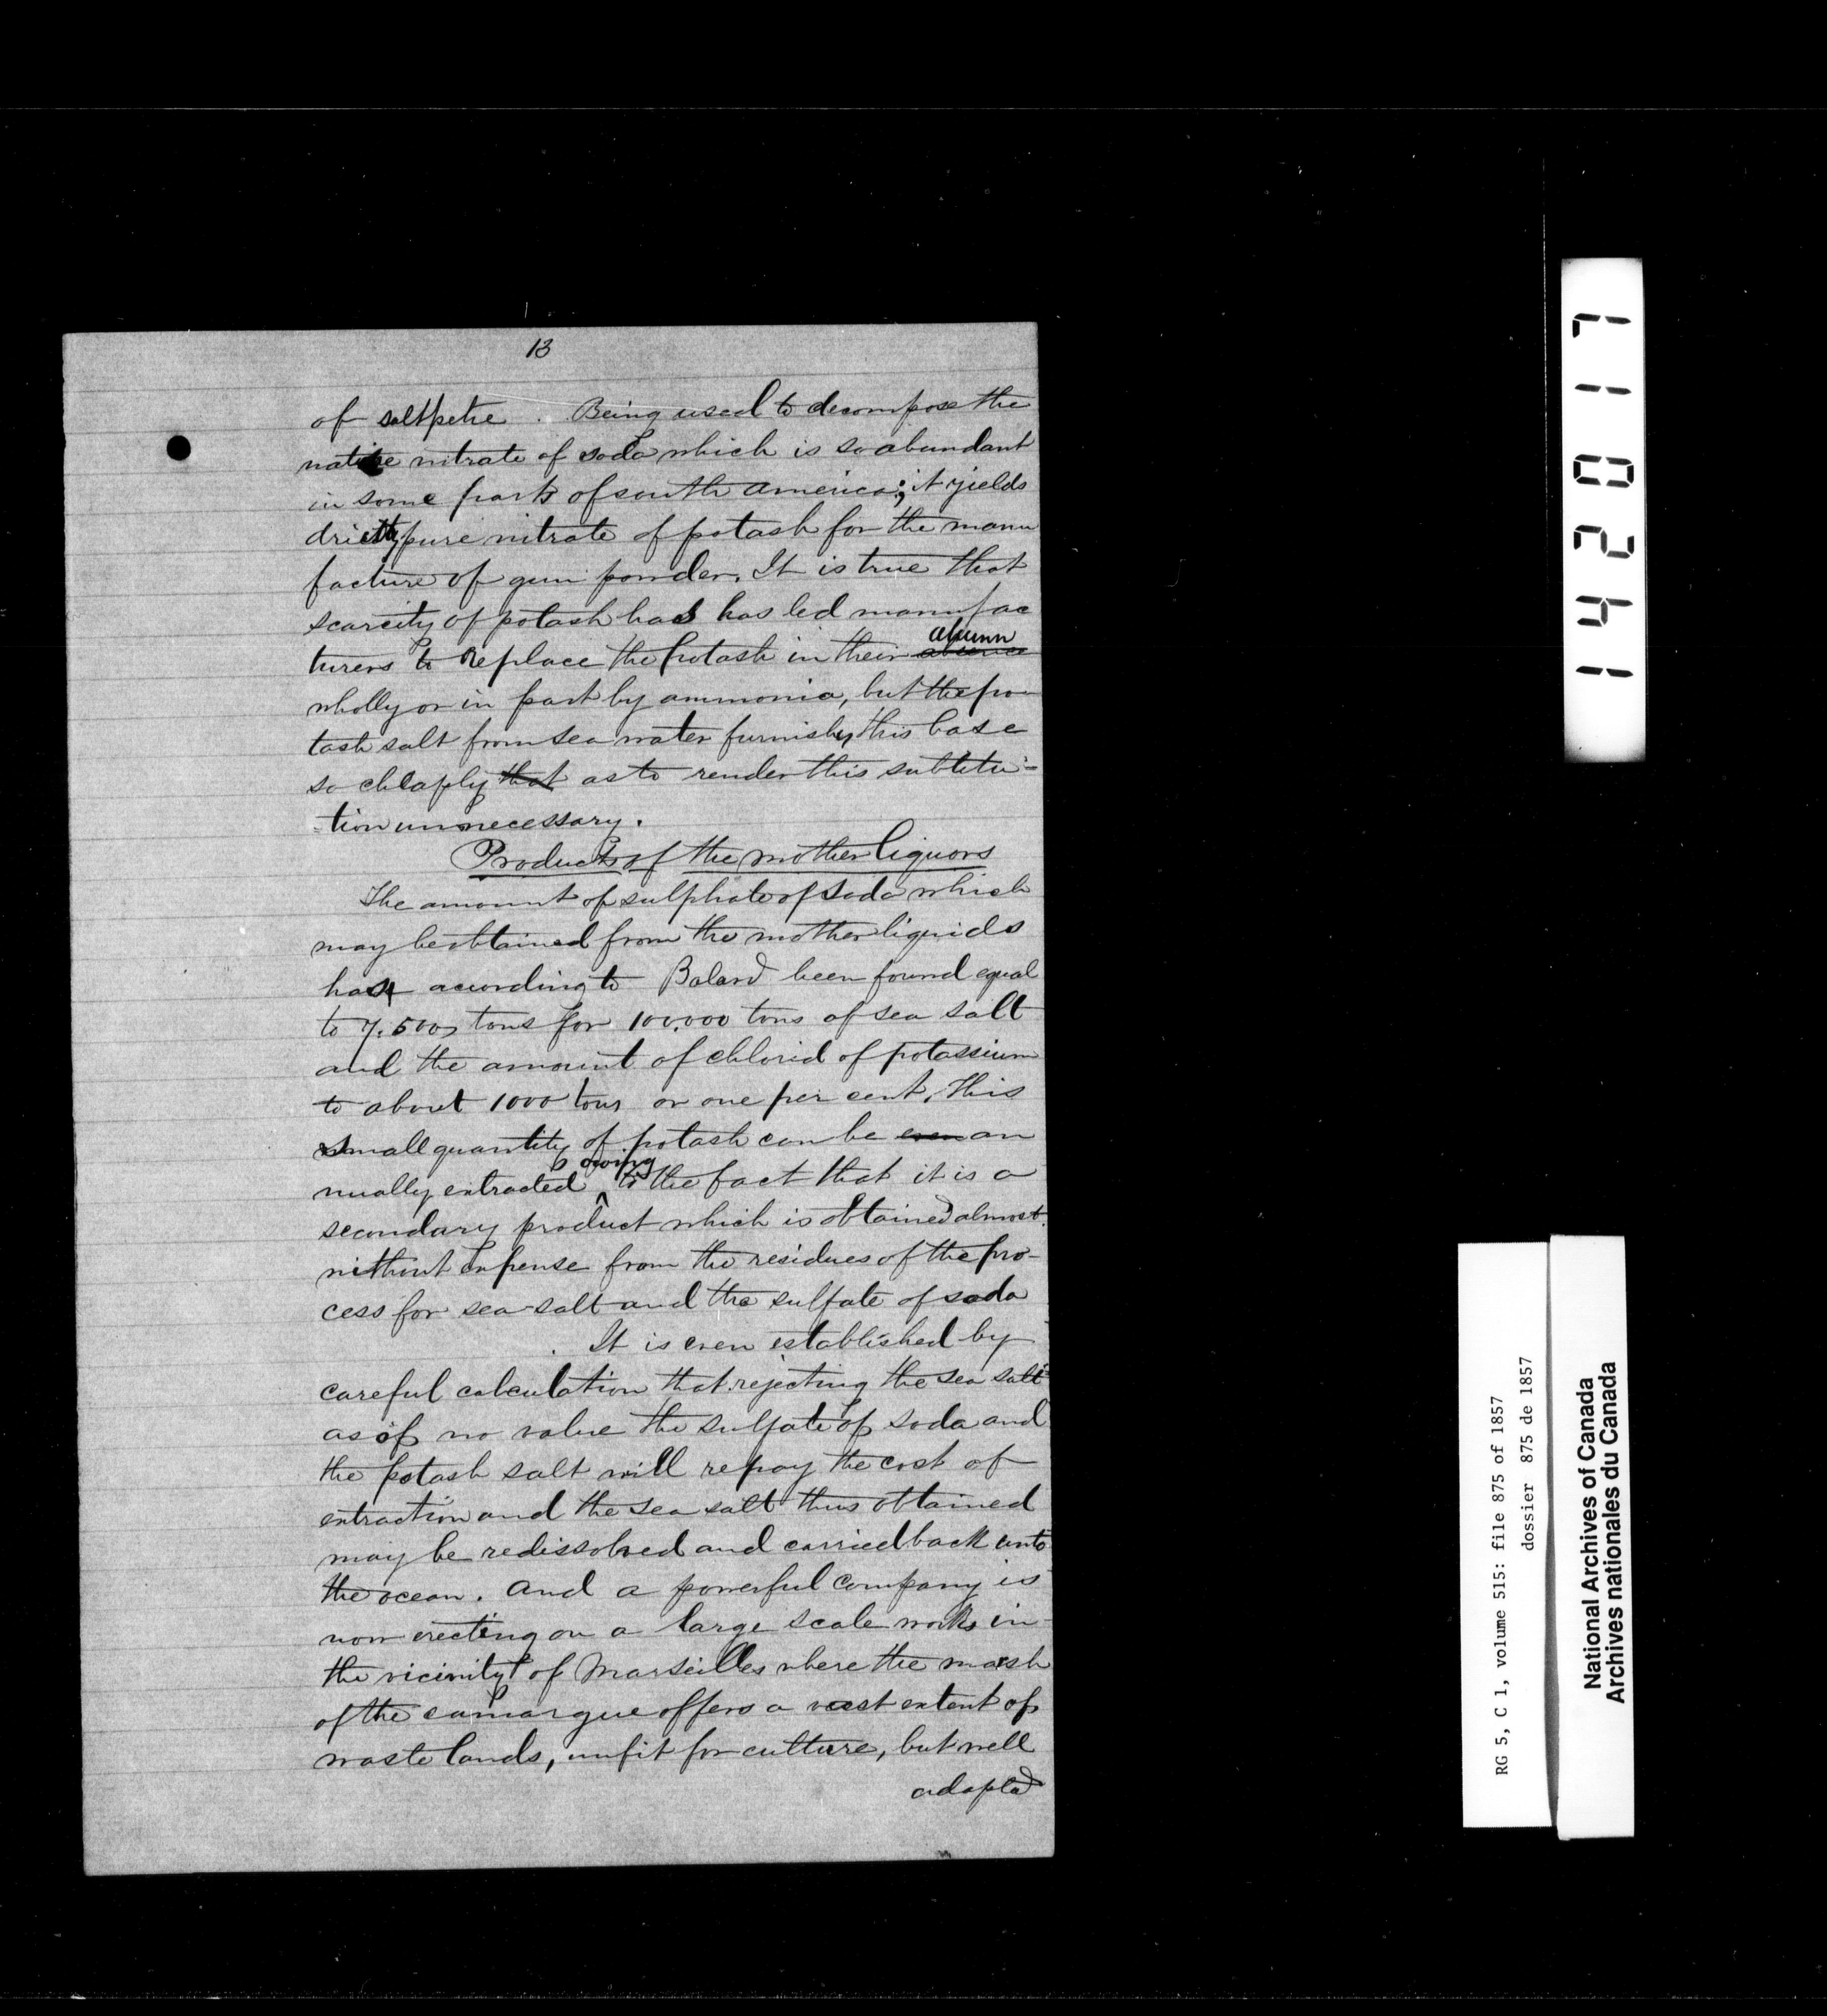 13
of saltpetre . Being used to decompose the
native nitrate of soda which is so abundant
in some parts of south america; it yields
pure nitrate of potash for the manu
facture of gun powder. It is true that
scarcity of potash has has led manufac
turers to replace the Potash in their alumn
wholly or in part by ammonia, but the po-
tash salt from sea water furnishes this base
so cheaply that as to render this subtitu-
tion unnecessary.
Products of the mother liquors
The amount of sulphate of soda which
may be obtained from the mother liquids
has according to Balard been found equal
to 7.500 tons for 100.000 tons of sea salt
and the amount of chlorid of potassium
to about 1000 tons or one per cent. This
small quantity of potash can be even an
nually extracted owing to the fact that it is a
secondary product which is obtained almost
without expense from the residues of the pro-
cess for sea-salt and the sulfate of soda
It is even established by
careful calculation that rejecting the sea salt
as of no value the sulfate of soda and
the potash salt will repay the cost of
extraction and the sea salt thus obtained
may be redissolved and carried back into
the ocean. And a powerful company is
now erecting on a large scale works in
the vicinity of Marseilles where the marsh
of the camargue offers a vast extent of
waste lands, unfit for culture, but well
adapted
142017
RG 5, C 1, volume 515: file 875 of 1857
dossier 875 de 1857
National Archives of Canada
Archives nationales du Canada